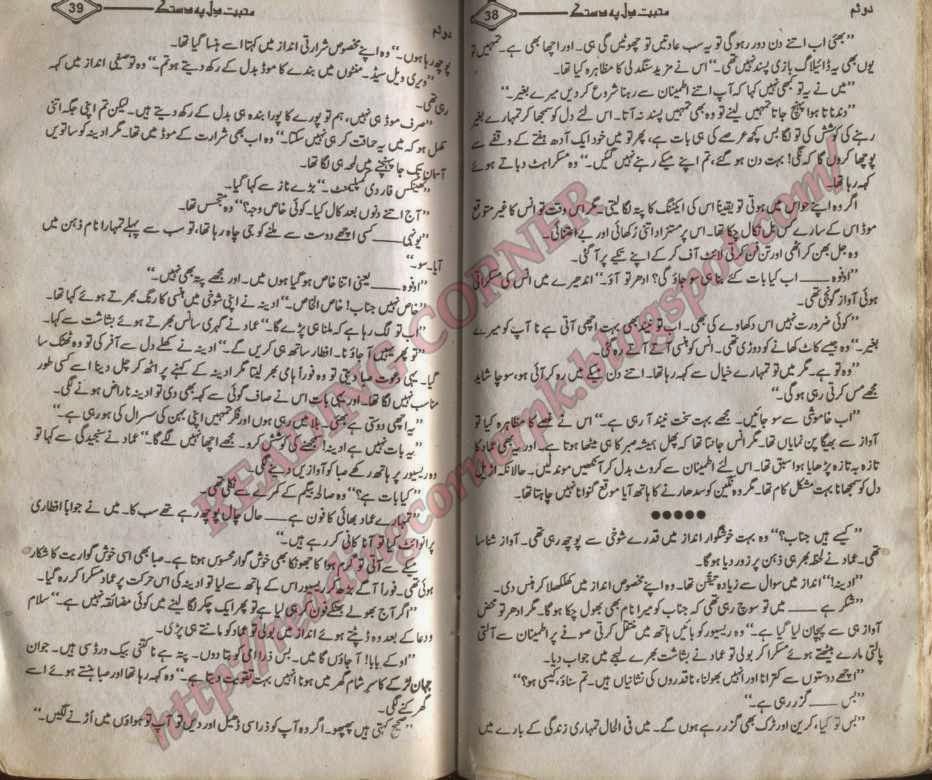 38
محبت دل پہ دستک
”بھئی اب اتنے دن دور رہو گی تو یہ سب عادتیں تو چھوٹیں گی ہی۔ اور اچھا بھی ہے۔ تمہیں تو
یوں بھی یہ ڈائیلاگ بازی پسند نہیں تھی۔“ اس نے مزید سنگدلی کا مظاہرہ کیا تھا۔
”میں نے یہ تو کبھی نہیں کہا کہ آپ اتنے اطمینان سے رہنا شروع کر دیں میرے بغیر۔“
”دندناتا ہوا پہنچ جاتا تمہیں لینے تو وہ بھی تمہیں پسند نہ آتا۔ اس لئے دل کو سمجھا کر تمہارے بغیر
رہنے کی کوشش کی تو لگا بس کچھ عرصے کی ہی بات ہے، پھر تو میں خود ایک آدھ ہفتے کے وقفے سے
پوچھا کروں گا کہ نگی! بہت دن ہو گئے، تم اپنے میکے رہنے نہیں گئیں۔“ وہ مسکراہٹ دباتے ہوئے
کہہ رہا تھا۔
اگر وہ اپنے حواس میں ہوتی تو یقیناً اس کی ایکٹنگ کا پتہ لگا لیتی۔ مگر اس وقت تو انس کا غیر متوقع
موڈ اس کے سارے کس بل نکال چکا تھا۔ اس پر مستزاد اتنی رکھائی اور بے اعتنائی۔
وہ جل بھن کر اٹھی اور تن فن کرتی لائٹ آف کر کے اپنے تکیے پر آ گئی۔
”اوفوہ ــــ اب کیا بات کئے بنا ہی سو جاؤ گی؟ ادھر تو آؤ۔“ اندھیرے میں انس کی مسکراتی
ہوئی آواز گونجی تھی۔
”کوئی ضرورت نہیں اس دکھاوے کی بھی۔ اب تو نیند بھی بہت اچھی آتی ہے نا آپ کو میرے
بغیر۔“ وہ جیسے کاٹ کھانے کو دوڑی تھی۔ انس کو ہنسی آتے آتے رہ گئی۔
”وہ تو ہے۔ مگر میں تو تمہارے خیال سے کہہ رہا تھا۔ اتنے دن میکے میں رہ کر آئی ہو، سوچا شاید
مجھے مس کرتی رہی ہو گی۔“
”اب خاموشی سے سو جائیں۔ مجھے بہت سخت نیند آ رہی ہے۔“ اس نے غصے کا مظاہرہ کیا تو
آواز سے بھیگا پن نمایاں تھا۔ مگر انس جانتا تھا کہ پھل ہمیشہ صبر کا ہی میٹھا ہوتا ہے۔ اور یہ بھی عماد کا
تازہ بہ تازہ پڑھایا ہوا سبق تھا۔ اس لئے اطمینان سے کروٹ بدل کر آنکھیں موند لیں۔ حالانکہ اڑیل
دل کو سمجھانا بہت مشکل کام تھا۔ مگر وہ نگین کو سدھارنے کا ہاتھ آیا موقع گنوانا نہیں چاہتا تھا۔
●●●●●
”کیسے ہیں جناب؟“ وہ بہت خوشگوار انداز میں قدرے شوخی سے پوچھ رہی تھی۔ آواز شناسا
تھی۔ عماد نے لحظہ بھر ہی ذہن پر زور دیا ہو گا۔
”ادینہ!“ انداز میں سوال سے زیادہ تیقن تھا۔ وہ اپنے مخصوص انداز میں کھلکھلا کر ہنس دی۔
”شکر ہے ــــ میں تو سوچ رہی تھی کہ جناب کو میرا نام بھی بھول چکا ہو گا۔ مگر ادھر تو محض
آواز ہی سے پہچان لیا گیا ہے۔“ وہ ریسیور کو بائیں ہاتھ میں منتقل کرتی صوفے پر اطمینان سے آلتی
پالتی مارے بیٹھتے ہوئے مسکرا کر بولی تو عماد نے بشاشت بھرے لہجے میں جواب دیا۔
”اچھے دوستوں سے کترانا اور انہیں بھولنا، ناقدروں کی نشانیاں ہیں۔ تم سناؤ، کیسی ہو؟“
”بس ــــ گزر رہی ہے۔“
”بس تو کیا، کرین اور ٹرک بھی گزر رہے ہوں گے۔ میں فی الحال تمہاری زندگی کے بارے میں
39
محبت دل پہ دستک
پوچھ رہا ہوں۔“ وہ اپنے مخصوص شرارتی انداز میں کہتا اسے ہنسا گیا تھا۔
”ویری ویل سیڈ۔ منٹوں میں بندے کا موڈ بدل کے رکھ دیتے ہو تم۔“ وہ توصیفی انداز میں کہہ
رہی تھی۔
”صرف موڈ ہی نہیں، ہم تو پورے کا پورا بندہ ہی بدل کے رکھ دیتے ہیں۔ لیکن تم اپنی جگہ اتنی
مکمل ہو کہ میں یہ حماقت کر ہی نہیں سکتا۔“ وہ اب بھی شرارت کے موڈ میں تھا۔ مگر ادینہ کو ساتویں
آسمان تک جا پہنچنے میں لمحہ ہی لگا تھا۔
”تھینکس فار دی کمپلیمنٹ۔“ بڑے ناز سے کہا گیا۔
”آج اتنے دنوں بعد کال کیا۔ کوئی خاص وجہ؟“ وہ متجسس تھا۔
”یونہی ــــ کسی اچھے دوست سے ملنے کو جی چاہ رہا تھا، تو سب سے پہلے تمہارا نام ذہن میں
آیا۔ سو۔“
”اوفوہ ــــ یعنی اتنا خاص ہو گیا ہوں میں۔ اور مجھے پتہ بھی نہیں۔“
”خاص نہیں جناب! خاص الخاص۔“ ادینہ نے اپنی شوخی میں ہنسی کا رنگ بھرتے ہوئے کہا تھا۔
”اب تو لگ رہا ہے کہ ملنا ہی پڑے گا۔“ عماد نے گہری سانس بھرتے ہوئے بشاشت سے کہا۔
”تو پھر یہیں آ جاؤ نا۔ افطار ساتھ ہی کریں گے۔“ ادینہ نے کھلے دل سے آفر کی تو وہ ٹھٹک سا
گیا۔ یہی دعوت صبا دیتی تو وہ فوراً ہامی بھر لیتا مگر ادینہ کے کہنے پر اٹھ کر چل دینا اسے کسی طور
مناسب نہیں لگا تھا۔ اور یہی بات اس نے صاف گوئی سے کہہ بھی دی تو ادینہ ناراض ہونے لگی۔
”یہ اچھی دوستی ہے بھئی۔ بلا میں رہی ہوں اور فکر تمہیں اپنی بہن کی سسرال کی ہو رہی ہے۔“
”یہ بات نہیں ہے ادینہ! سمجھنے کی کوشش کرو۔ مجھے اچھا نہیں لگے گا۔“ عماد نے سنجیدگی سے کہا تو
وہ ریسیور پر ہاتھ رکھے صبا کو آوازیں دینے لگی۔
”کیا بات ہے؟“ وہ صالحہ بیگم کے کمرے سے نکلی تھی۔
”تمہارے عماد بھائی کا فون ہے ــــ حال چال پوچھ رہے تھے سب کا۔ میں نے جواباً افطاری
پر انوائٹ کیا تو آنا کانی کر رہے ہیں۔“
میکے سے آئی تو گرم ہوا کا جھونکا بھی خوش گوار محسوس ہوتا ہے۔ صبا بھی اسی خوش گواریت کا شکار
ہوئی تھی۔ فوراً آگے بڑھ کر ریسیور اس کے ہاتھ سے لیا تو ادینہ کی اس حرکت پر عماد مسکرا کر رہ گیا۔
”اگر آج بھولے بھٹکے فون کر ہی لیا ہے تو پھر ایک چکر لگا لینے میں کوئی مضائقہ نہیں ہے۔“ سلام
و دعا کے بعد وہ ڈپٹتے ہوئے انداز میں بولی تو عماد کو مانتے ہی پڑی۔
”اوکے بابا! آ جاؤں گا میں۔ بس ذرا امی کو بتا دوں۔ پتہ ہے نا کتنی بیک ورڈ سی ہیں۔ جوان
جہان لڑکے کا سرِ شام گھر میں ہونا انہیں بہت تقویت دیتا ہے۔“ وہ کہہ رہا تھا اور صبا ہنستے ہوئے اسے
گھرکنے لگی۔
”صحیح کہتی ہیں پھپھو۔ اگر وہ آپ کو ذرا سی ڈھیل اور دیں تو آپ تو ہواؤں میں اُڑنے لگیں۔“
READING CORNER
http://readingcornerpk.blogspot.com/